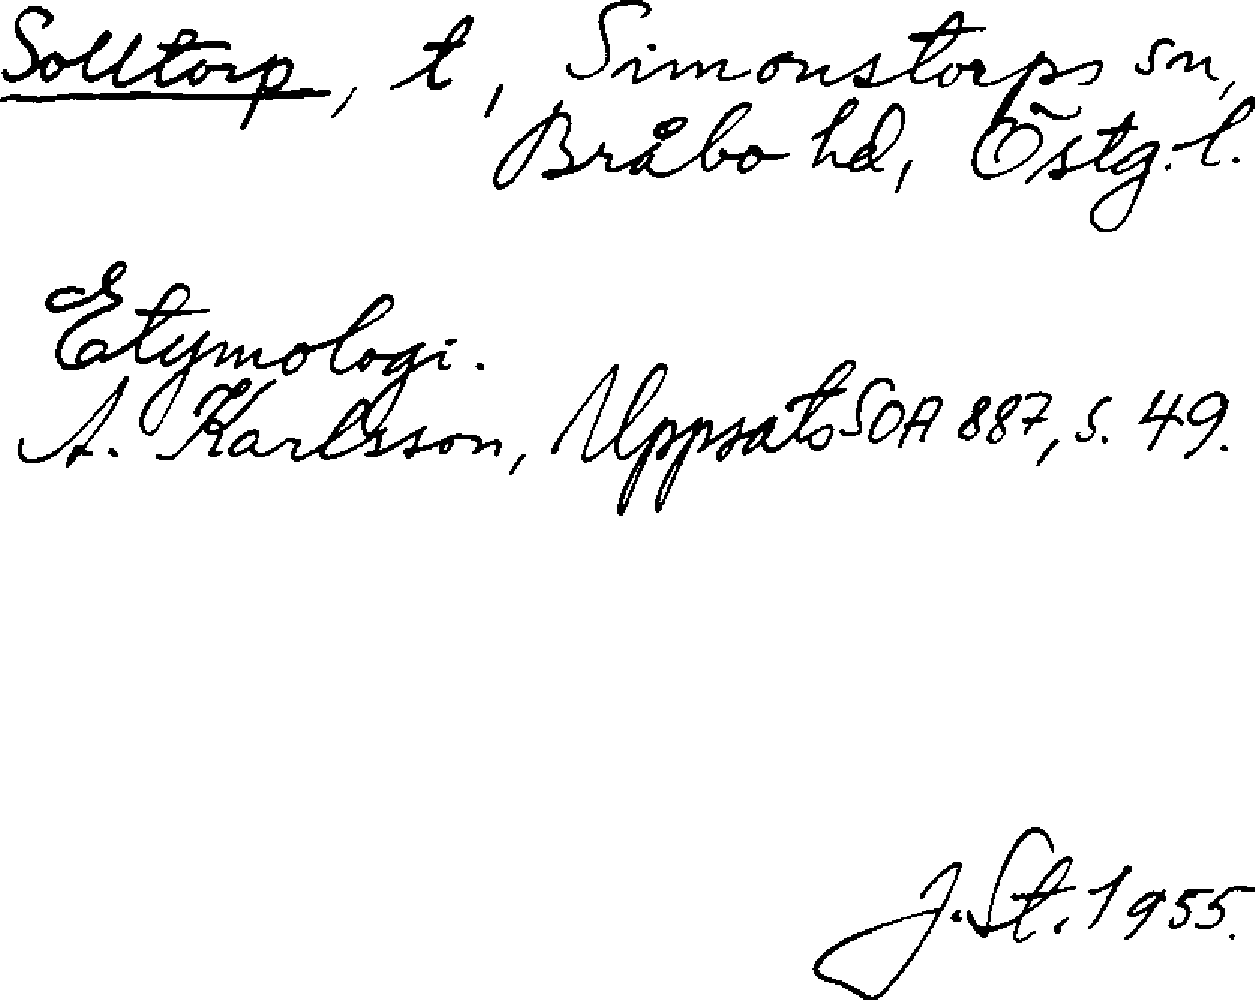 Solltorp, t, Simonstorps sn,
Bråbo hd, Östg. l.
Etymologi.
A. Karlsson, Uppsats SOA 887, s. 49.
J. St. 1955.